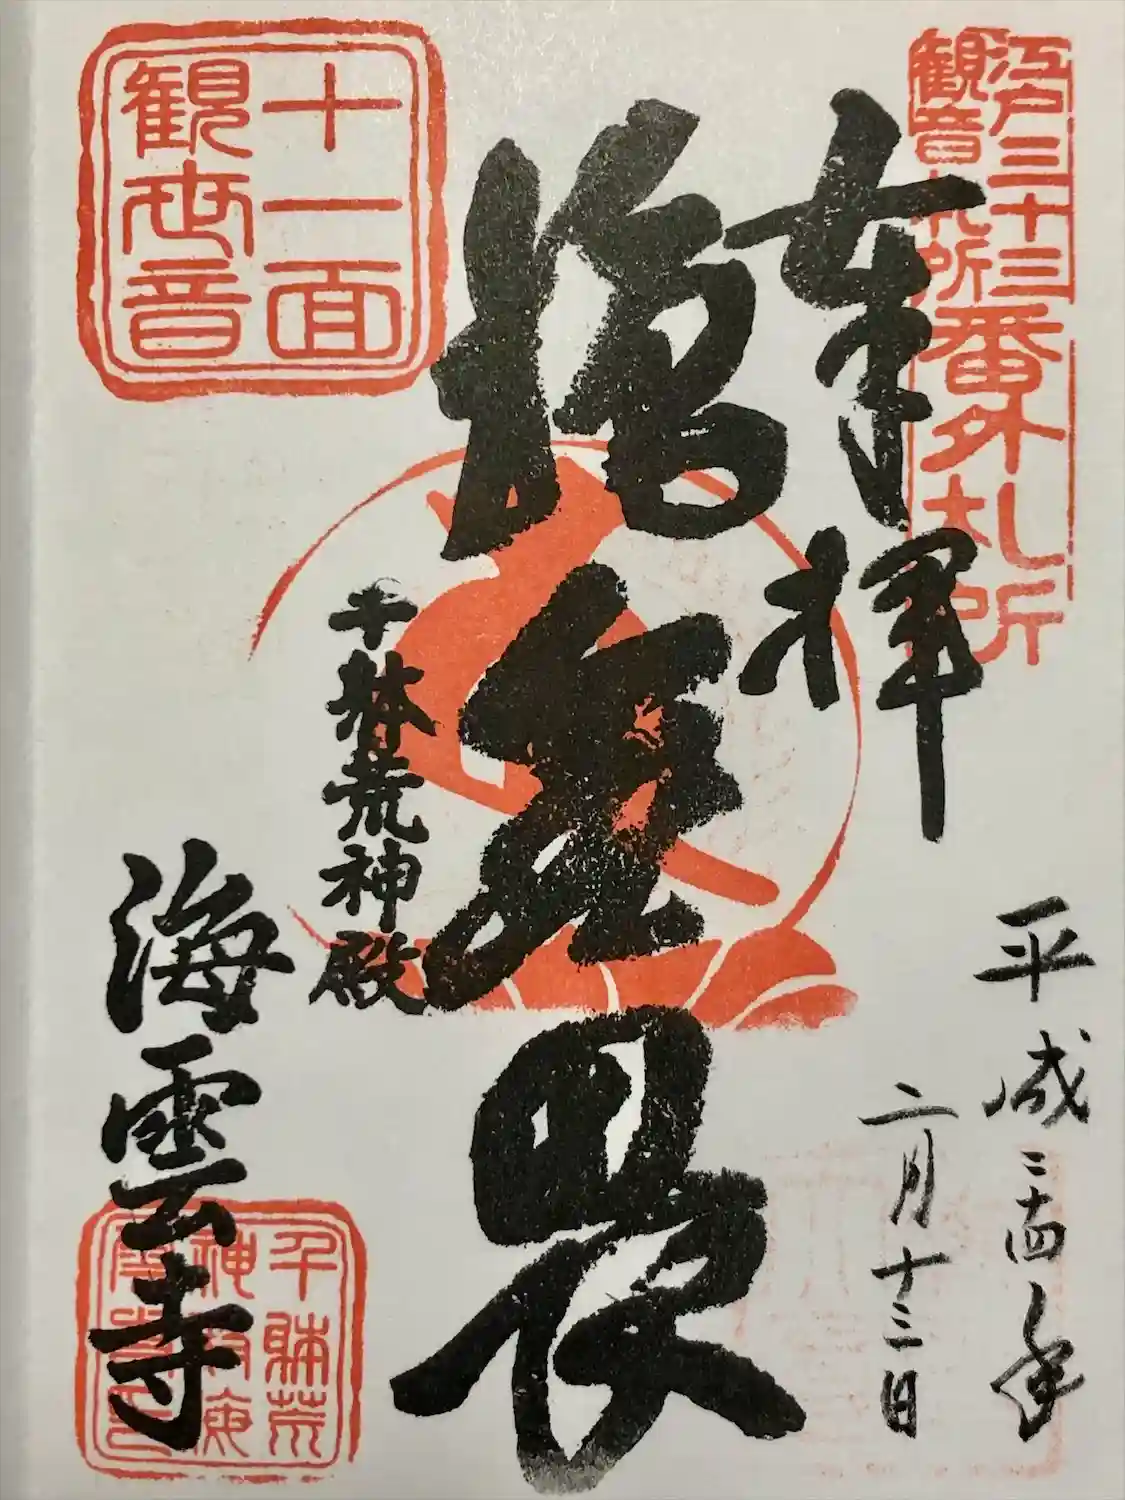 江戸三十三
観音札所
番外札所
奉拝
平成二十四年
二月十二日
施無畏
千躰荒神殿
海雲寺
十一面
観世音
千躰荒